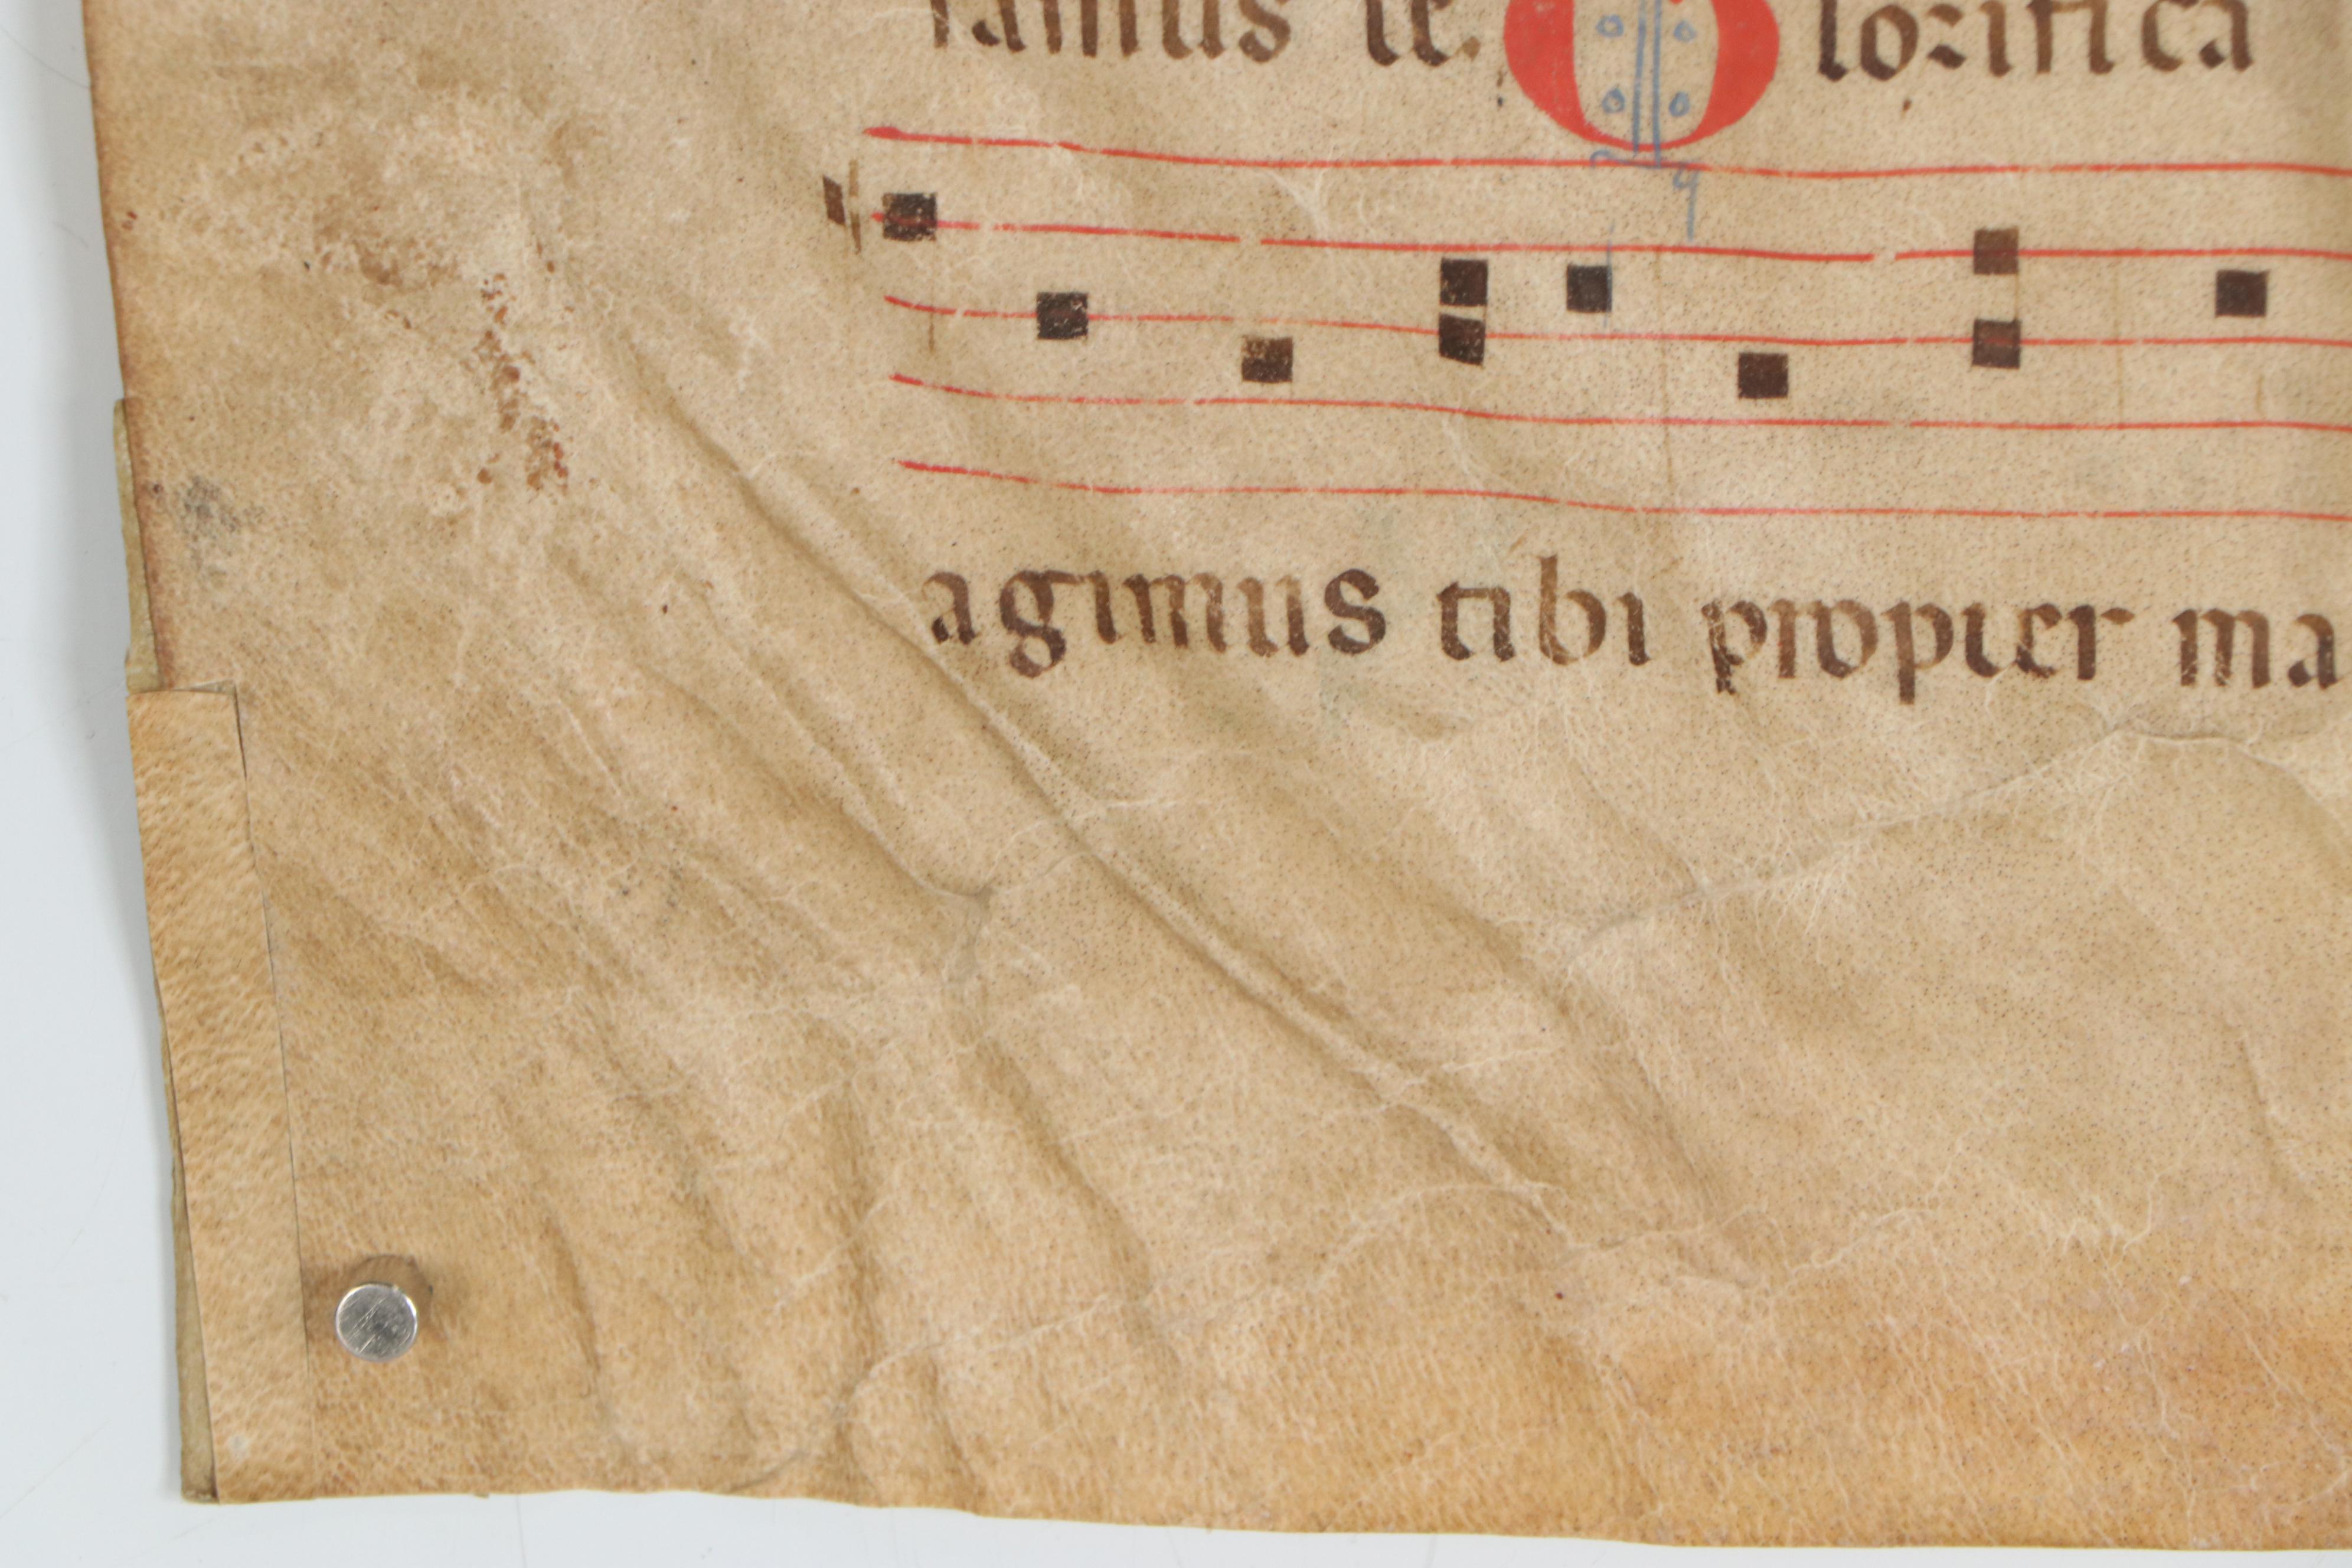 ramus te. Glorifica
agimus tibi propter ma